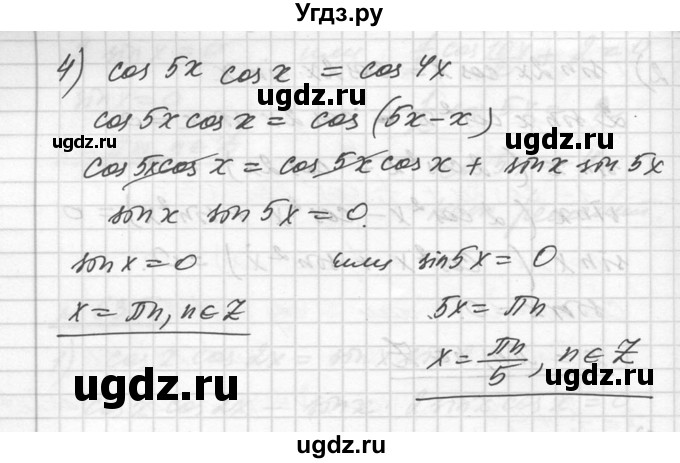 Угдз.ру
4) cos 5x cos x = cos 4x
ugdz.ru
ugdz.ru
cos 5x cos x = cos (5x − x)
cos 5x cos x = cos 5x cos x + sin x sin 5x
sin x sin 5x = 0
sin x = 0 или sin 5x = 0
x = πn, n ∈ Z 5x = πn
ugdz.ru
ugdz.ru
x = πn/5, n ∈ Z
ugdz.ru